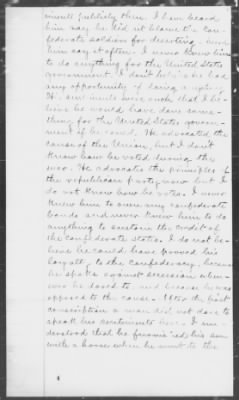 ments publicly then. I have heard
him say he did not blame the Con-
federate soldiers for deserting. heard
him say it often. I never knew him
to do anything for the United States
government. I don't believe he had
any opportunity of doing anything.
His sentiments were such that I be-
lieve he would have done some-
thing for the United States govern-
ment if he could. He advocated the
cause of the Union, but I don't
know how he voted during the
war. He advocates the principles of
the republican party now but I
do not know how he votes. I never
knew him to own any confederate
bonds and never knew him to do
anything to sustain the credit of
the confederate states. I do not be-
lieve he could have proved his
loyalty to the confederacy, because
he spoke against secession when-
ever he dared to, and because he was
opposed to the cause. After the first
conscription a man did not dare to
speak his sentiments here. I un-
derstood that he furnished his son
with a horse when he went to the